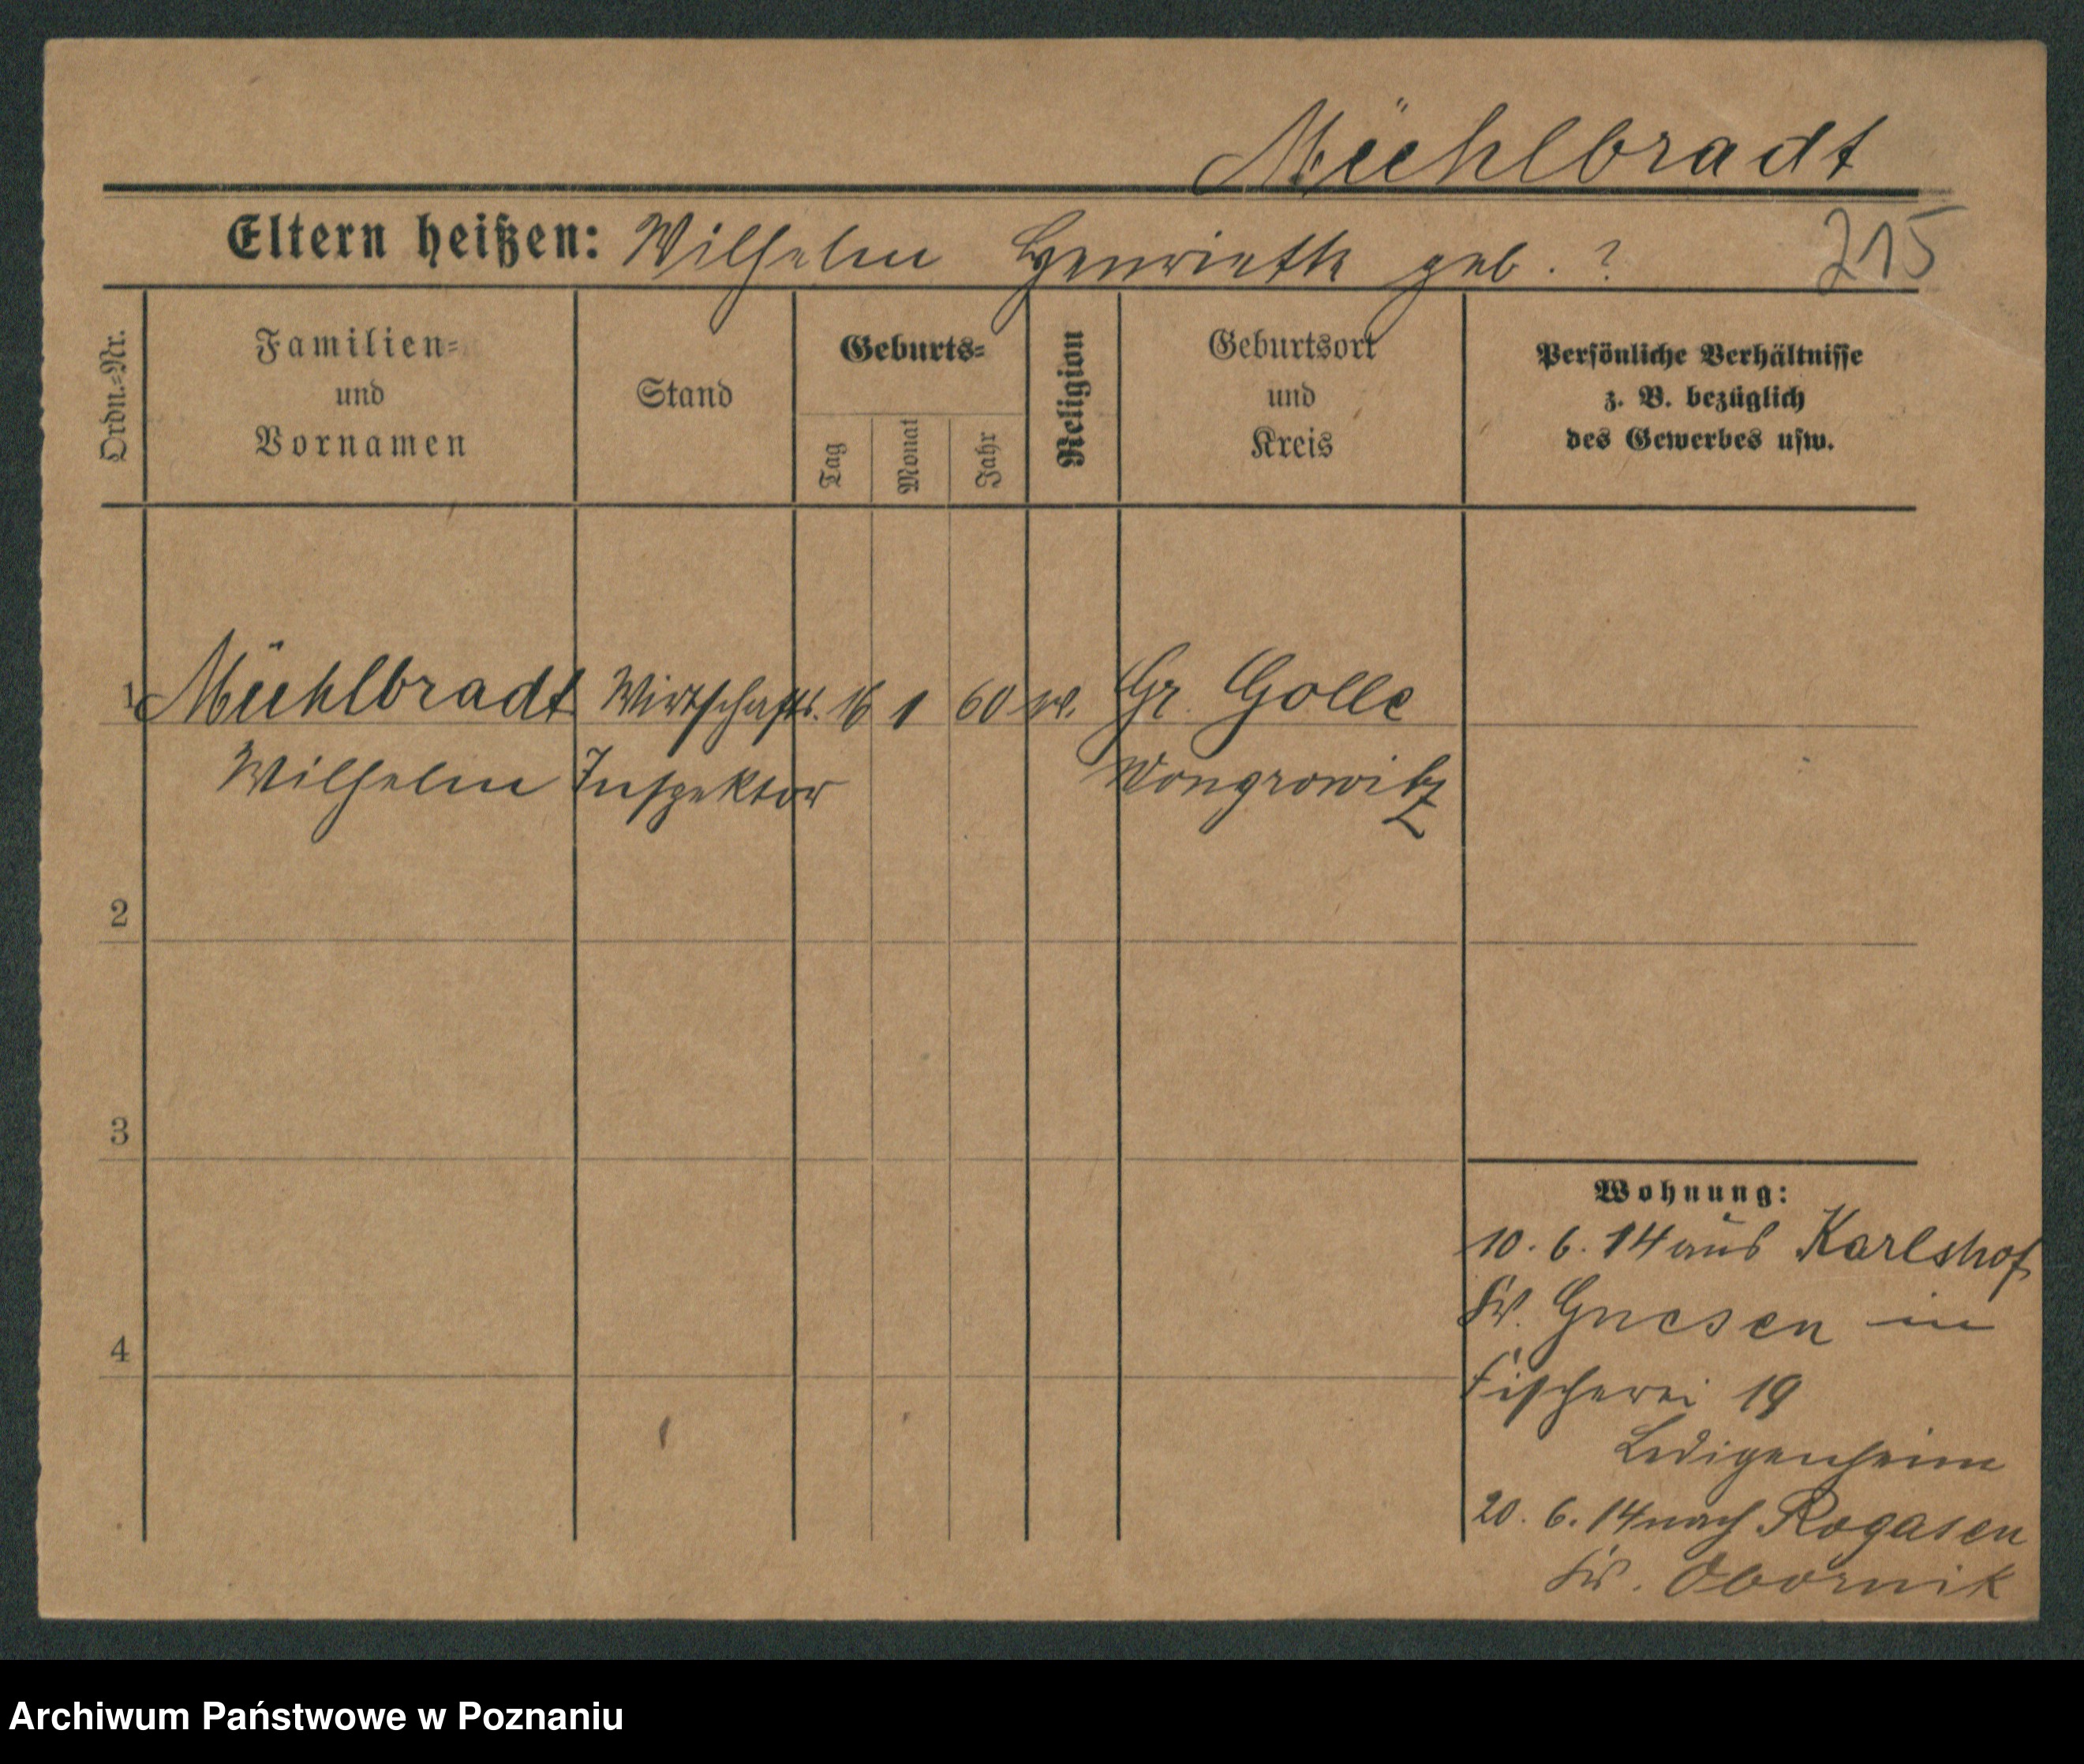 Mühlbradt
Eltern heißen: Wilhelm Henriette geb. ?
215
Ordn.=Nr.
Familien=
und
Vornamen
Stand
Geburts=
Tag
Monat
Jahr
Religion
Geburtsort
und
Kreis
Persönliche Verhältnisse
z. B. bezüglich
des Gewerbes usw.
1 Mühlbradt Wirtschafts. 16 1 60 ev. Gr. Golle
Wilhelm Inspektor Wongrowitz
2
3
4
Wohnung:
10. 6. 14 aus Karlshof
Kr. Gnesen in
Fischerei 19
Ledigenheim
20. 6. 14 nach Rogasen
Kr. Obornik
Archiwum Państwowe w Poznaniu